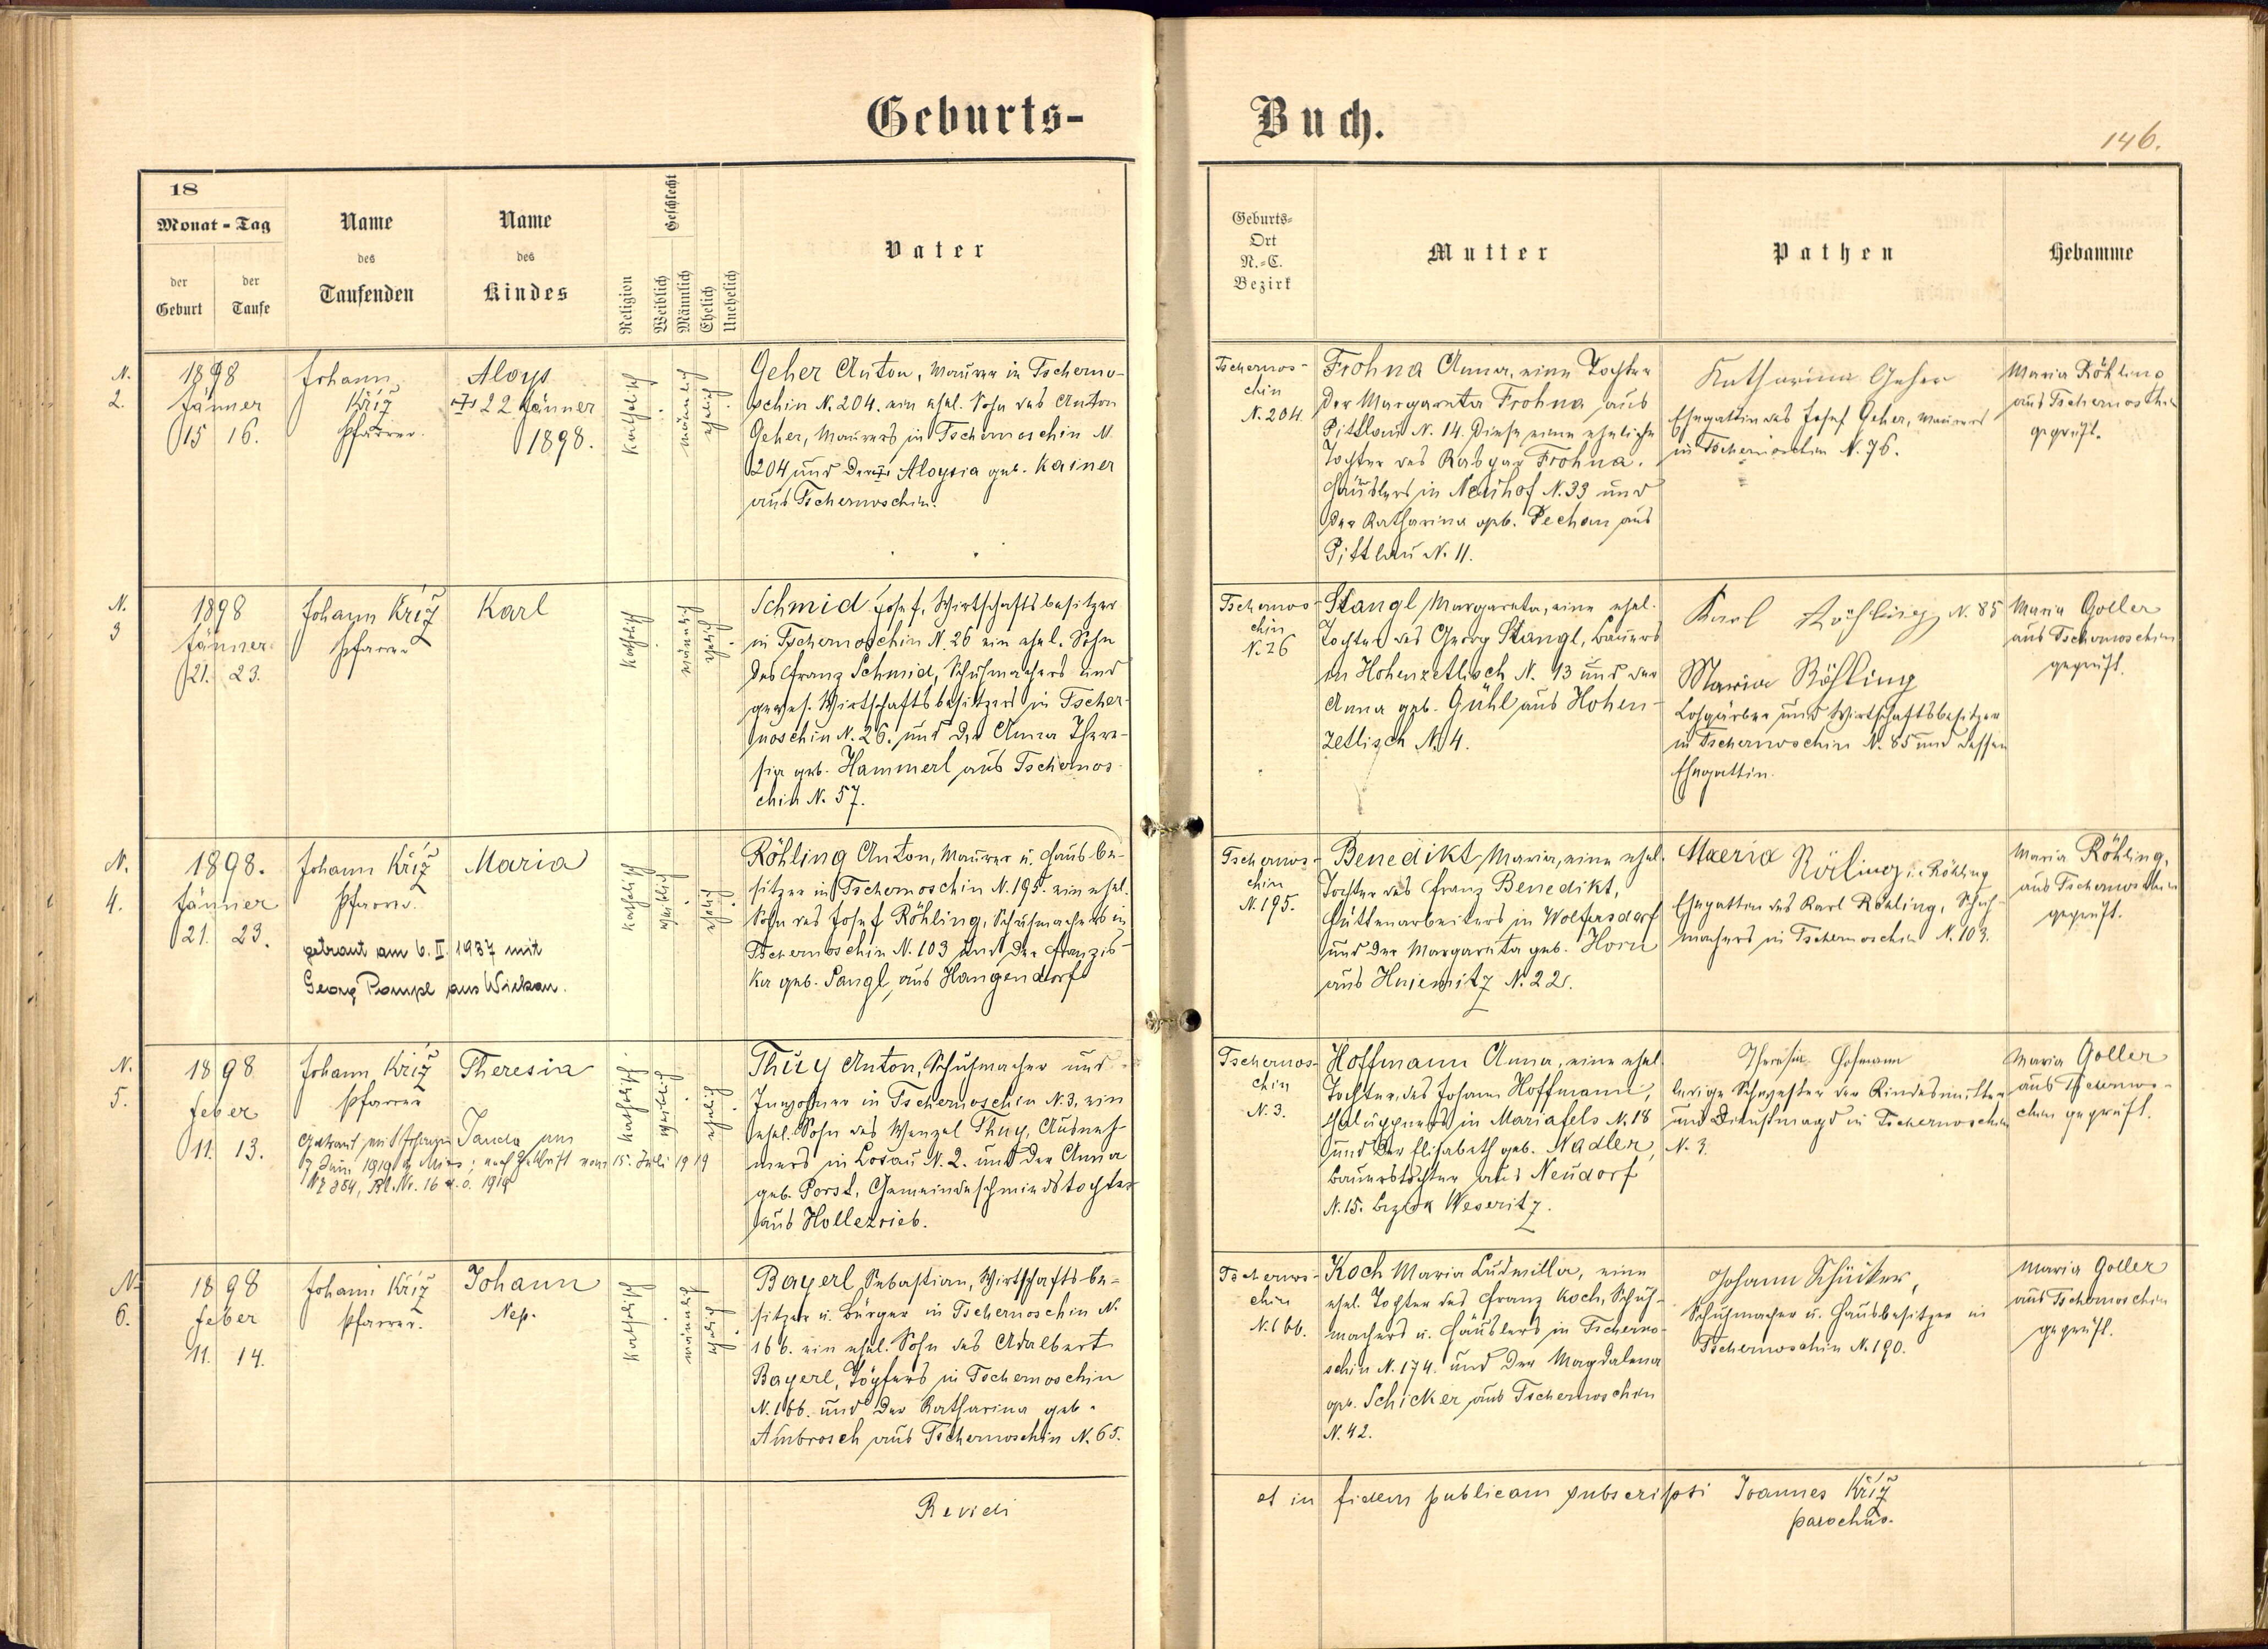 Geburts-
Buch.
146.
18
Monat - Tag
der Geburt
der Taufe
Name des Taufenden
Name des Kindes
Religion
Geschlecht
Weiblich
Männlich
Ehelich
Unehelich
Vater
Geburts-
Ort
N.-C.
Bezirk
Mutter
Pathen
Hebamme
N.
2.
1898
Jänner
15 16.
Johann
Kříž
Pfarrer.
Aloys
† 22 Jänner
1898.
katholisch
männlich
ehelich
Geher Anton, Maurer in Tscherno-
schin N. 204. ein ehel. Sohn des Anton
Geher, Maurers in Tschernoschin N.
204 und der Aloysia geb. Kainer
aus Tschernoschin.
Tschernos-
chin
N. 204
Frohna Anna, eine Tochter
der Margareta Frohna aus
Pittlau N. 14. diese eine eheliche
Tochter des Kaspar Frohna.
Häuslers in Neuhof N. 33 und
der Katharina geb. Pechan aus
Pittlau N. 11.
Katharina Geher
Ehegattin des Josef Geher, Maurers
in Tschernoschin N. 76.
Maria Röhling
aus Tschernoschin
geprüft.
N.
3
1898
Jänner
21. 23.
Johann Kříž
Pfarrer
Karl
katholisch
männlich
ehelich
Schmid Josef, Wirtschaftsbesitzer
in Tschernoschin N. 26 ein ehel. Sohn
des Franz Schmid, Schuhmachers und
gewes. Wirtschaftsbesitzers in Tscher-
noschin N. 26. und der Anna There-
sia geb. Hammerl aus Tschernos-
chin N. 57.
Tschernos-
chin
N. 26
Stangl Margareta, eine ehel.
Tochter des Georg Stangl, Bauers
in Hohenzetlisch N. 13 und der
Anna geb. Gühl aus Hohen-
zetlisch N. 4.
Karl Röhling N. 85
Maria Röhling
Lohgärber und Wirtschaftsbesitzer
in Tschernoschin N. 85 und dessen
Ehegattin.
Maria Goller
aus Tschernoschin
geprüft.
N.
4.
1898.
Jänner
21. 23.
Johann Kříž
Pfarrer.
Maria
getraut am 6. II. 1937 mit
Georg Pompl aus Wickau.
katholisch
weiblich
ehelich
Röhling Anton, Maurer u. Hausbe-
sitzer in Tschernoschin N. 195. ein ehel.
Sohn des Josef Röhling, Schuhmachers in
Tschernoschin N. 103 und der Franzis-
ka geb. Sangl, aus Hangendorf
Tschernos-
chin
N. 195.
Benedikt Maria, eine ehel.
Tochter des Franz Benedikt,
Hüttenarbeiters in Wolfersdorf
und der Margareta geb. Horn
aus Hniemitz N. 22.
Maeria Röling i.e. Röhling
Ehegattin des Karl Röhling, Schuh-
machers in Tschernoschin N. 103.
Maria Röhling,
aus Tschernoschin
geprüft.
N.
5.
1898
Feber
11. 13.
Johann Kříž
Pfarrer
Theresia
Getraut mit Johann Janda am
7 Juni 1919 in Mies; nach Zuschrift vom 15. Juli 1919
NE 354, Bl. Nr. 16 a. o. 1919
katholisch
weiblich
ehelich
Thuy Anton, Schuhmacher und
Inwohner in Tschernoschin N. 3, ein
ehel. Sohn des Wenzel Thuy, Ausneh-
mers in Losau N. 2. und der Anna
geb. Porst, Gemeindeschmiedstochter
aus Hollezrieb.
Tschernos-
chin
N. 3.
Hoffmann Anna, eine ehel.
Tochter, des Johann Hoffmann,
Chaluppners in Mariafels N. 18
und der Elisabeth geb. Nadler,
Bauerstochter aus Neudorf
N. 15. Bezirk Weseritz.
Theresia Hofmann
ledige Schwester der Kindesmutter
und Dienstmagd in Tschernoschin
N. 3.
Maria Goller
aus Tscherno-
schin geprüft.
N.
6.
1898
Feber
11. 14.
Johann Kříž
Pfarrer.
Johann
Nep.
katholisch
männlich
ehelich
Bayerl Sebastian, Wirtschaftsbe-
sitzer u. Bürger in Tschernoschin N.
166. ein ehel. Sohn des Adalbert
Bayerl, Töpfers in Tschernoschin
N. 166. und der Katharina geb.
Ambrosch aus Tschernoschin N. 65.
Tscherno-
chin
N. 166.
Koch Maria Ludmilla, eine
ehel. Tochter des Franz Koch, Schuh-
machers u. Häuslers in Tscherno-
schin N. 174. und der Magdalena
geb. Schicker aus Tschernoschin
N. 42.
Johann Schicker,
Schuhmacher u. Hausbesitzer in
Tschernoschin N. 190.
Maria Goller
aus Tschernoschin
geprüft.
Revidi et in fidem publicam subscripsi Joannes Kříž
parochus.